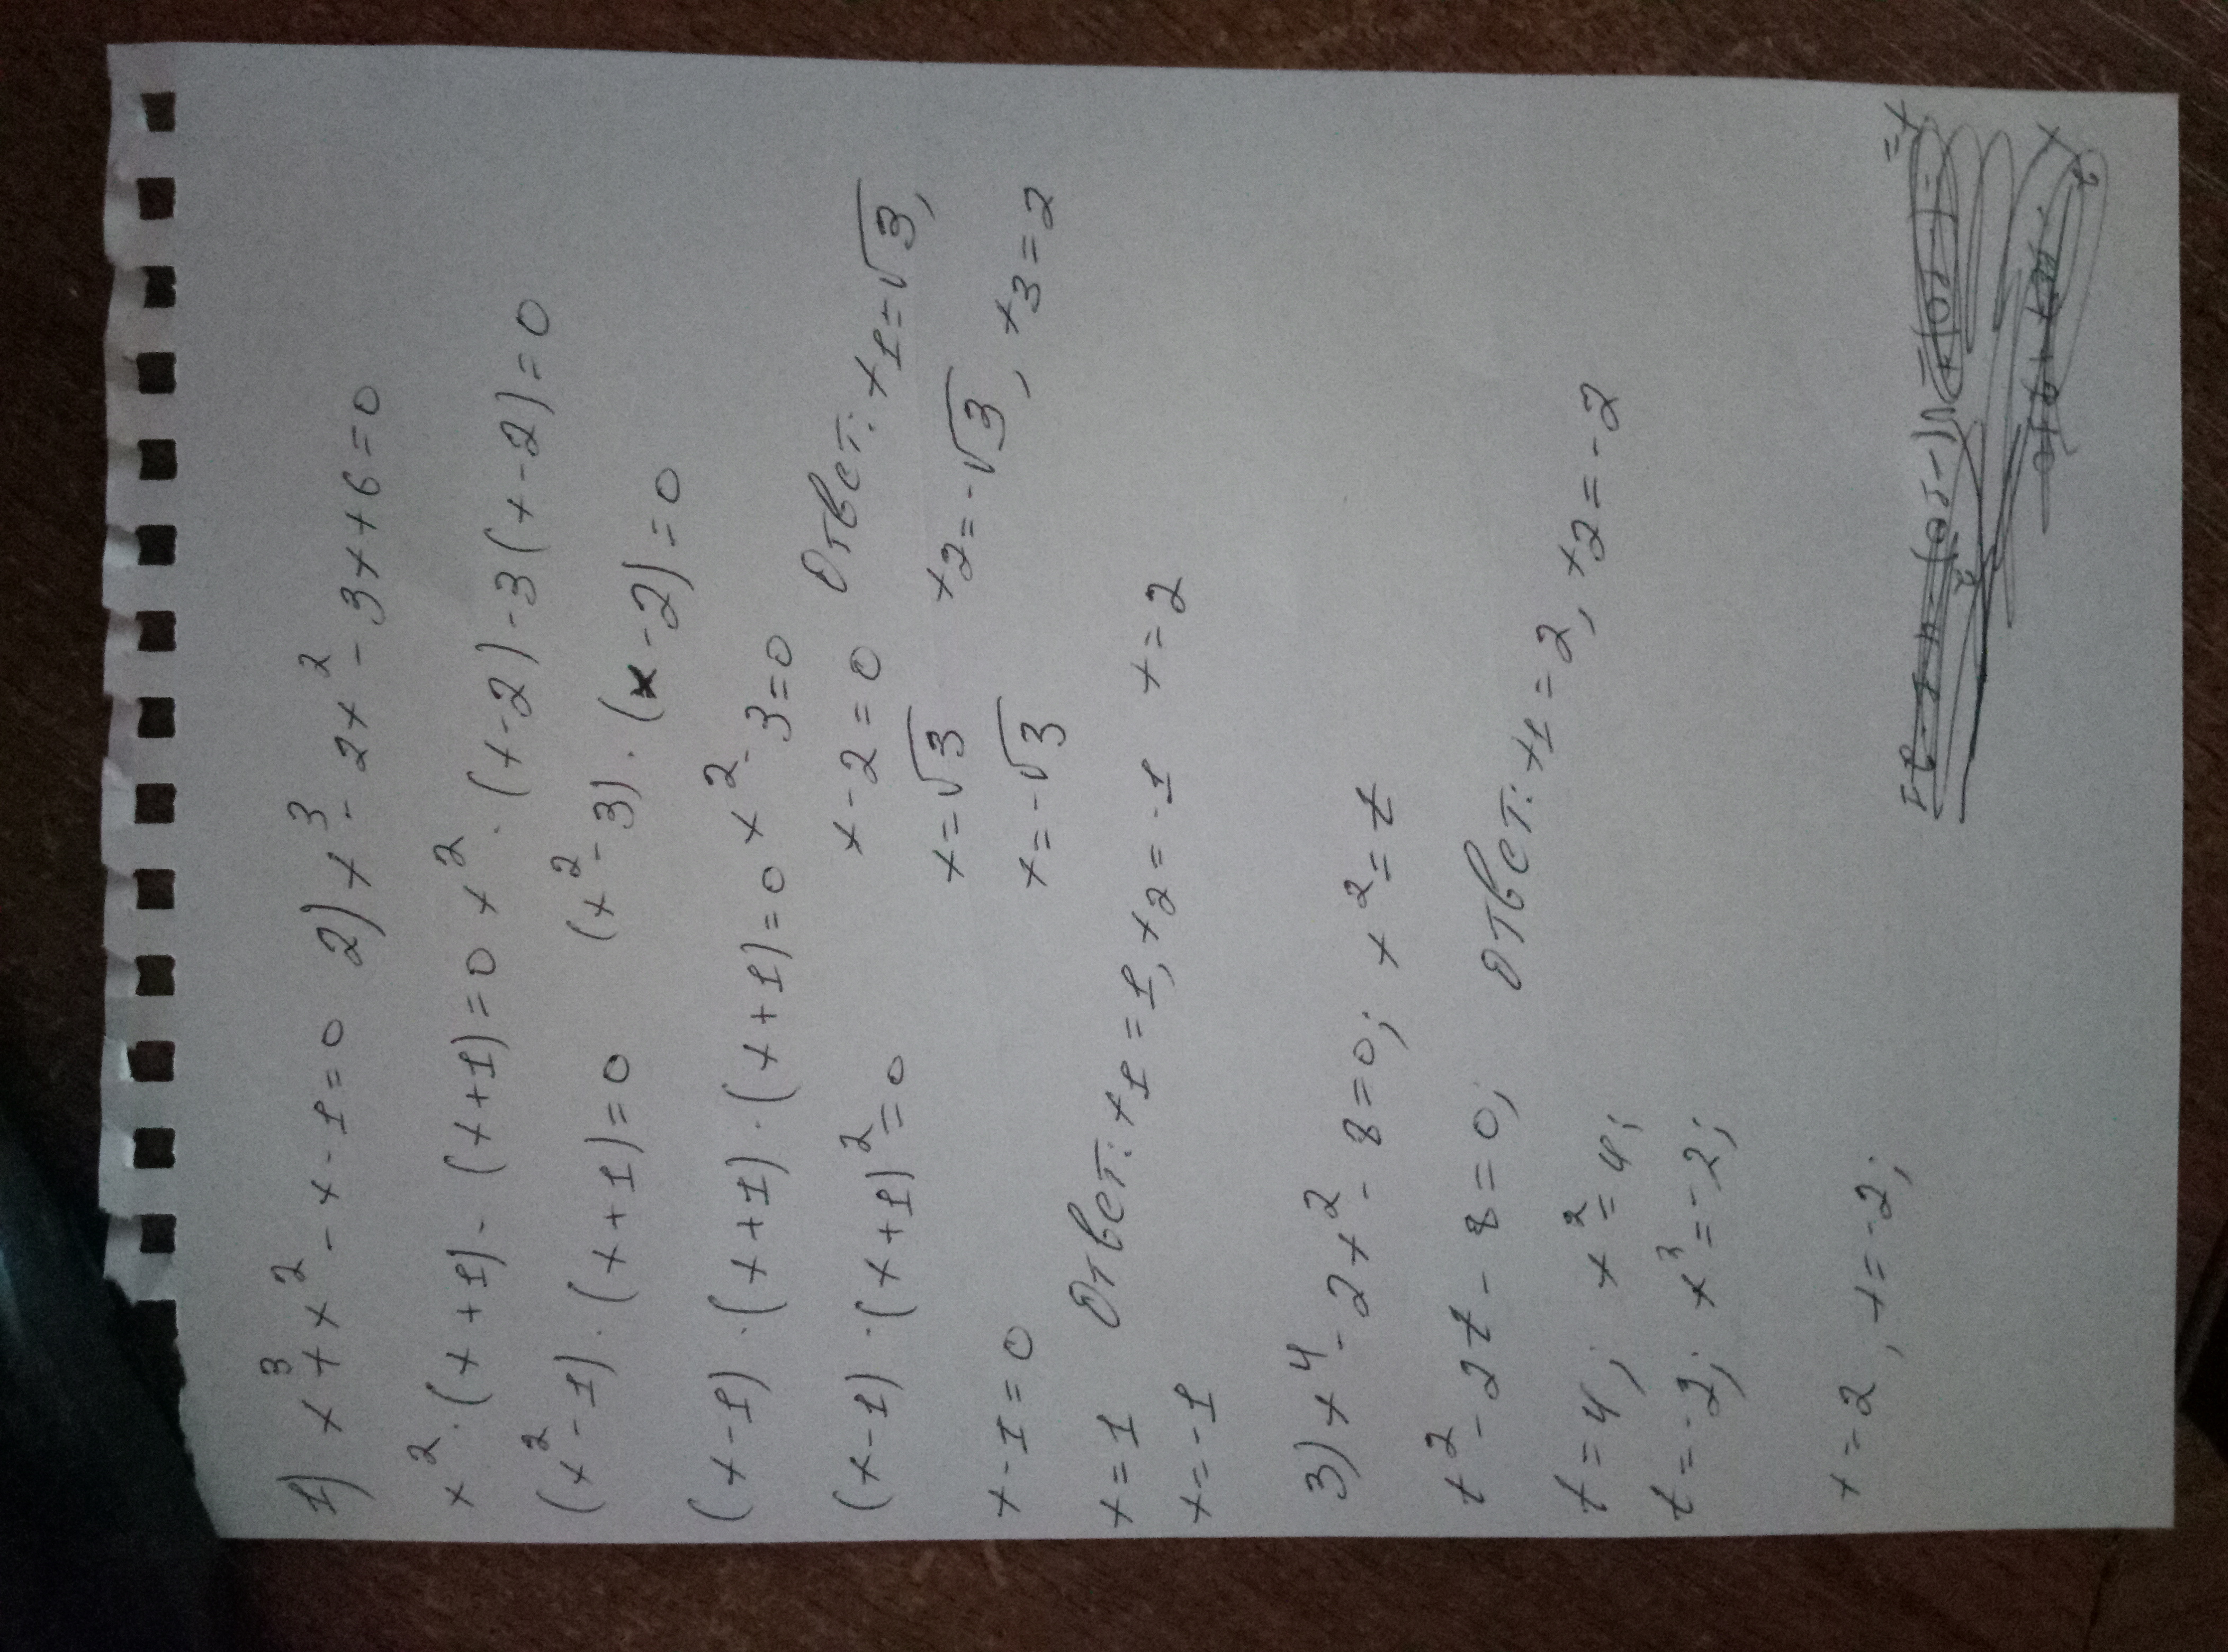 1) x³+x²-x-1=0
x²·(x+1)-(x+1)=0
(x²-1)·(x+1)=0
(x-1)·(x+1)·(x+1)=0
(x-1)·(x+1)²=0
x-1=0
x=1
x=-1
Ответ: x1=1, x2=-1
2) x³-2x²-3x+6=0
x²·(x-2)-3(x-2)=0
(x²-3)·(x-2)=0
x²-3=0
x-2=0
x=√3
x=-√3
x=2
Ответ: x1=√3,
x2=-√3, x3=2
3) x⁴-2x²-8=0; x²=t
t²-2t-8=0;
t=4; x²=4;
t=-2; x³=-2;
x=2, x=-2;
Ответ: x1=2, x2=-2